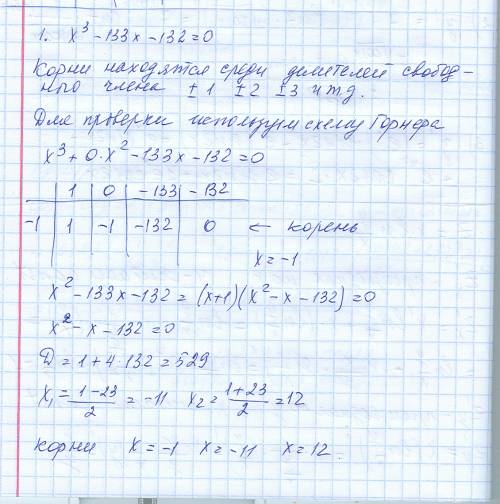 1. x³ -133x -132=0
Корни находятся среди делителей свобод-
ного члена ±1 ±2 ±3 итд.
Для проверки используем схему Горнера
x³+0·x²-133x-132=0
1 0 -133 -132
-1 1 -1 -132 0 ← корень
x=-1
x²-133x-132=(x+1)(x²-x-132)=0
x²-x-132=0
D=1+4·132=529
x₁=(1-23)/2=-11 x₂=(1+23)/2=12
корни x=-1 x=-11 x=12.